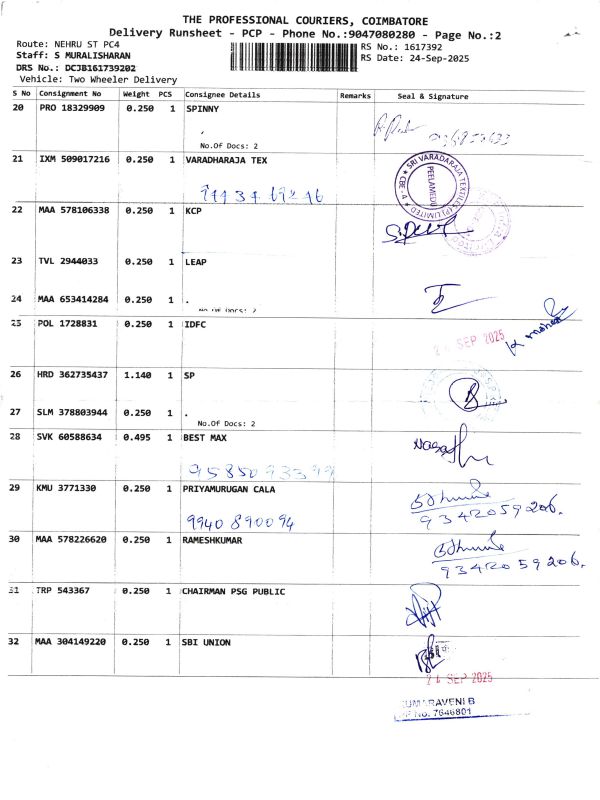 THE PROFESSIONAL COURIERS, COIMBATORE
Delivery Runsheet - PCP - Phone No.:9047080280 - Page No.:2
Route: NEHRU ST PC4
RS No.: 1617392
Staff: S MURALISHARAN
RS Date: 24-Sep-2025
DRS No.: DCJB161739202
Vehicle: Two Wheeler Delivery
S No Consignment No Weight PCS Consignee Details Remarks Seal & Signature
20 PRO 18329909 0.250 1 SPINNY
No.Of Docs: 2
21 IXM 509017216 0.250 1 VARADHARAJA TEX
SRI VARADARAJA TEXTILES (P) LIMITED
PEELAMEDU
CBE - 4
22 MAA 578106338 0.250 1 KCP
23 TVL 2944033 0.250 1 LEAP
24 MAA 653414284 0.250 1 .
No.Of Docs: 2
25 POL 1728831 0.250 1 IDFC
SEP 2025
26 HRD 362735437 1.140 1 SP
27 SLM 378803944 0.250 1 .
No.Of Docs: 2
28 SVK 60588634 0.495 1 BEST MAX
29 KMU 3771330 0.250 1 PRIYAMURUGAN CALA
9940890094
9342059206.
30 MAA 578226620 0.250 1 RAMESHKUMAR
9342059206.
31 TRP 543367 0.250 1 CHAIRMAN PSG PUBLIC
32 MAA 304149220 0.250 1 SBI UNION
SEP 2025
KUMARAVENI B
No: 7646801